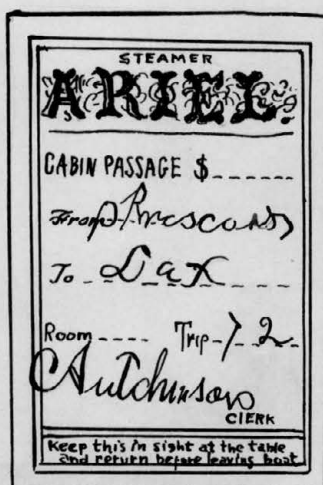 STEAMER
ARIEL.
CABIN PASSAGE $
From Prescott
To Lax
Room Trip 72
Hutchinson
CLERK
Keep this in sight at the table
and return before leaving boat